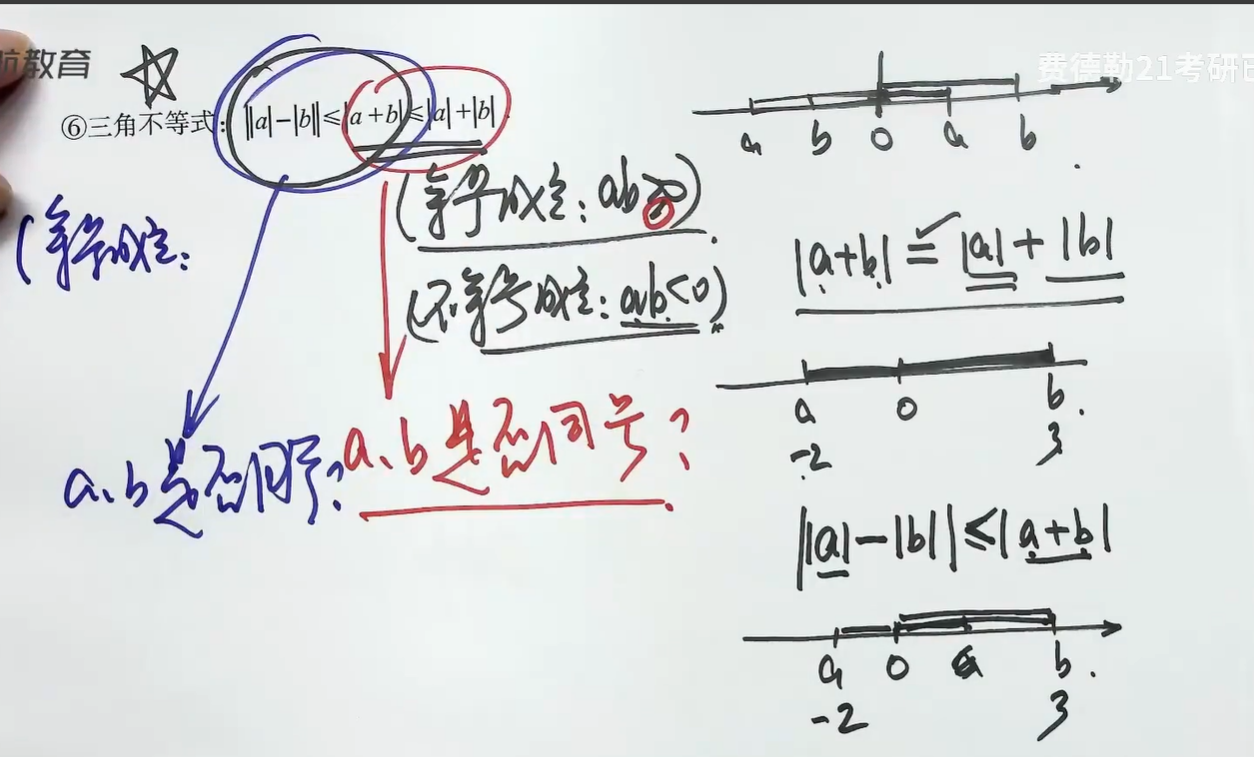 航教育
费德勒21考研
⑥三角不等式: ||a|-|b||≤|a+b|≤|a|+|b|.
(等号成立: ab≥0)
(不等号成立: ab<0)
(等号成立:
a、b是否同号?
a、b是否同号?
a b 0 a b
|a+b| = |a| + |b|
a 0 b
-2 3
||a|-|b||≤|a+b|
a 0 b
-2 3